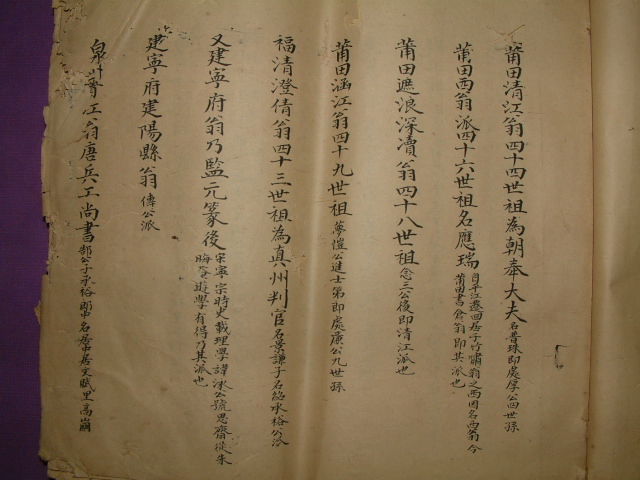 莆田清江翁四十四世祖為朝奉大夫名普珠即處厚公四世孫
莆田西翁派四十六世祖名應瑞自平江遷回居于竹嘯翁之西因名西翁今莆田書倉翁即其派也
莆田遮浪深瀆翁四十八世祖念三公後即清江派也
莆田涵江翁四十九世祖夢愷公進士第即處廉公九世孫
福清澄倩翁四十三世祖為真州判官名景謙子名紹承裕公派
又建寧府翁乃監元篆後宋寧宗時史載理學諱泳公號思齋從朱晦菴遊學有得乃其派也
建寧府建陽縣翁傳公派
泉州晉江翁唐兵工尚書郜公子承裕郎中名居中居文賦里高